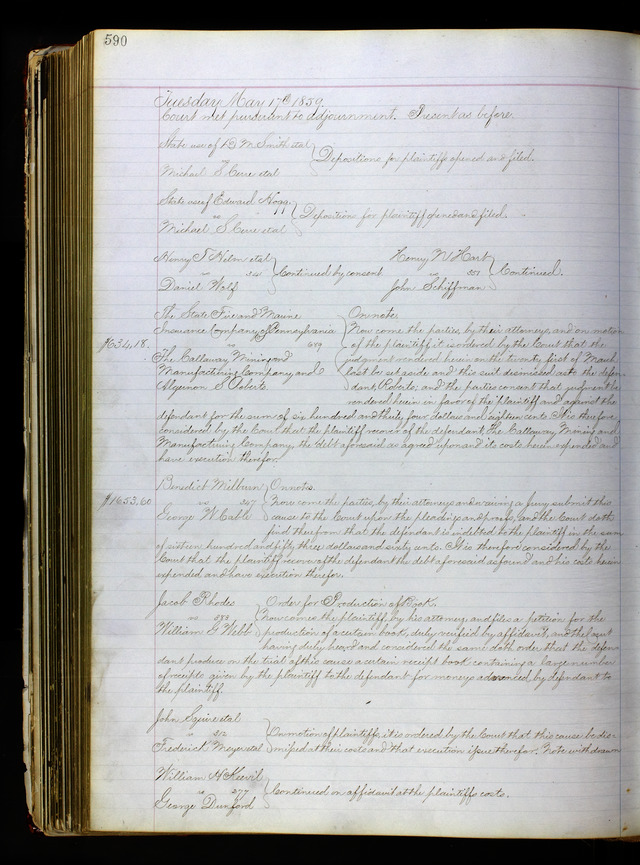 590
Tuesday May 17th 1859.
Court met pursuant to adjournment. Present as before.
State use of D M Smith et al
vs
Depositions for plaintiff opened and filed.
Michael S Cerre et al
State use of Edward Hogg
vs
Deposition for plaintiff opened and filed.
Michael S Cerre et al
Henry T et al
vs
Continued by consent
Daniel Wolf
Henry N Hart
vs 551
Continued.
John Schiffman
The State Fire and Marine
Insurance Company of Pennsylvania
vs 689
$634.18.
The Callaway Mining and
Manufacturing Company and
Algernon S Roberts
On note.
Now come the parties, by their attorneys, and on motion
of the plaintiff it is ordered by the Court that the
judgment rendered herein on the twenty first of March
last be set aside and this suit dismissed as to the defen-
dant, Roberts; and the parties consent that judgment be
rendered herein in favor of the plaintiff and against the
defendant for the sum of six hundred and thirty four dollars and eighteen cents. It is therefore
considered by the Court that the plaintiff recover of the defendant, The Callaway Mining and
Manufacturing Company, the debt aforesaid as agreed upon and its costs herein expended and
have execution therefor.
Benedict Milburn
vs 347
$1653.60
George W Cable
On note.
Now come the parties, by their attorneys and waiving a jury submit this
cause to the Court upon the pleadings and proofs, and the Court doth
find therefrom that the defendant is indebted to the plaintiff in the sum
of sixteen hundred and fifty three dollars and sixty cents. It is therefore considered by the
Court that the plaintiff recover of the defendant the debt aforesaid as found and his costs herein
expended and have execution therefor.
Jacob Rhodes
vs
William G Webb
Order for Production of Book.
Now comes the plaintiff by his attorney and files a petition for the
production of a certain book, duly verified by affidavit, and the Court
having duly heard and considered the same doth order that the defen-
dant produce on the trial of this cause a certain receipt book containing a large number
of receipts given by the plaintiff to the defendant for moneys advanced by defendant to
the plaintiff.
John Squire et al
vs 512
Frederick Meyer et al
On motion of plaintiffs, it is ordered by the Court that this cause be dis-
missed at their costs and that execution issue therefor. Note withdrawn
William H
vs 277
George Dunford
Continued on affidavit at the plaintiffs costs.